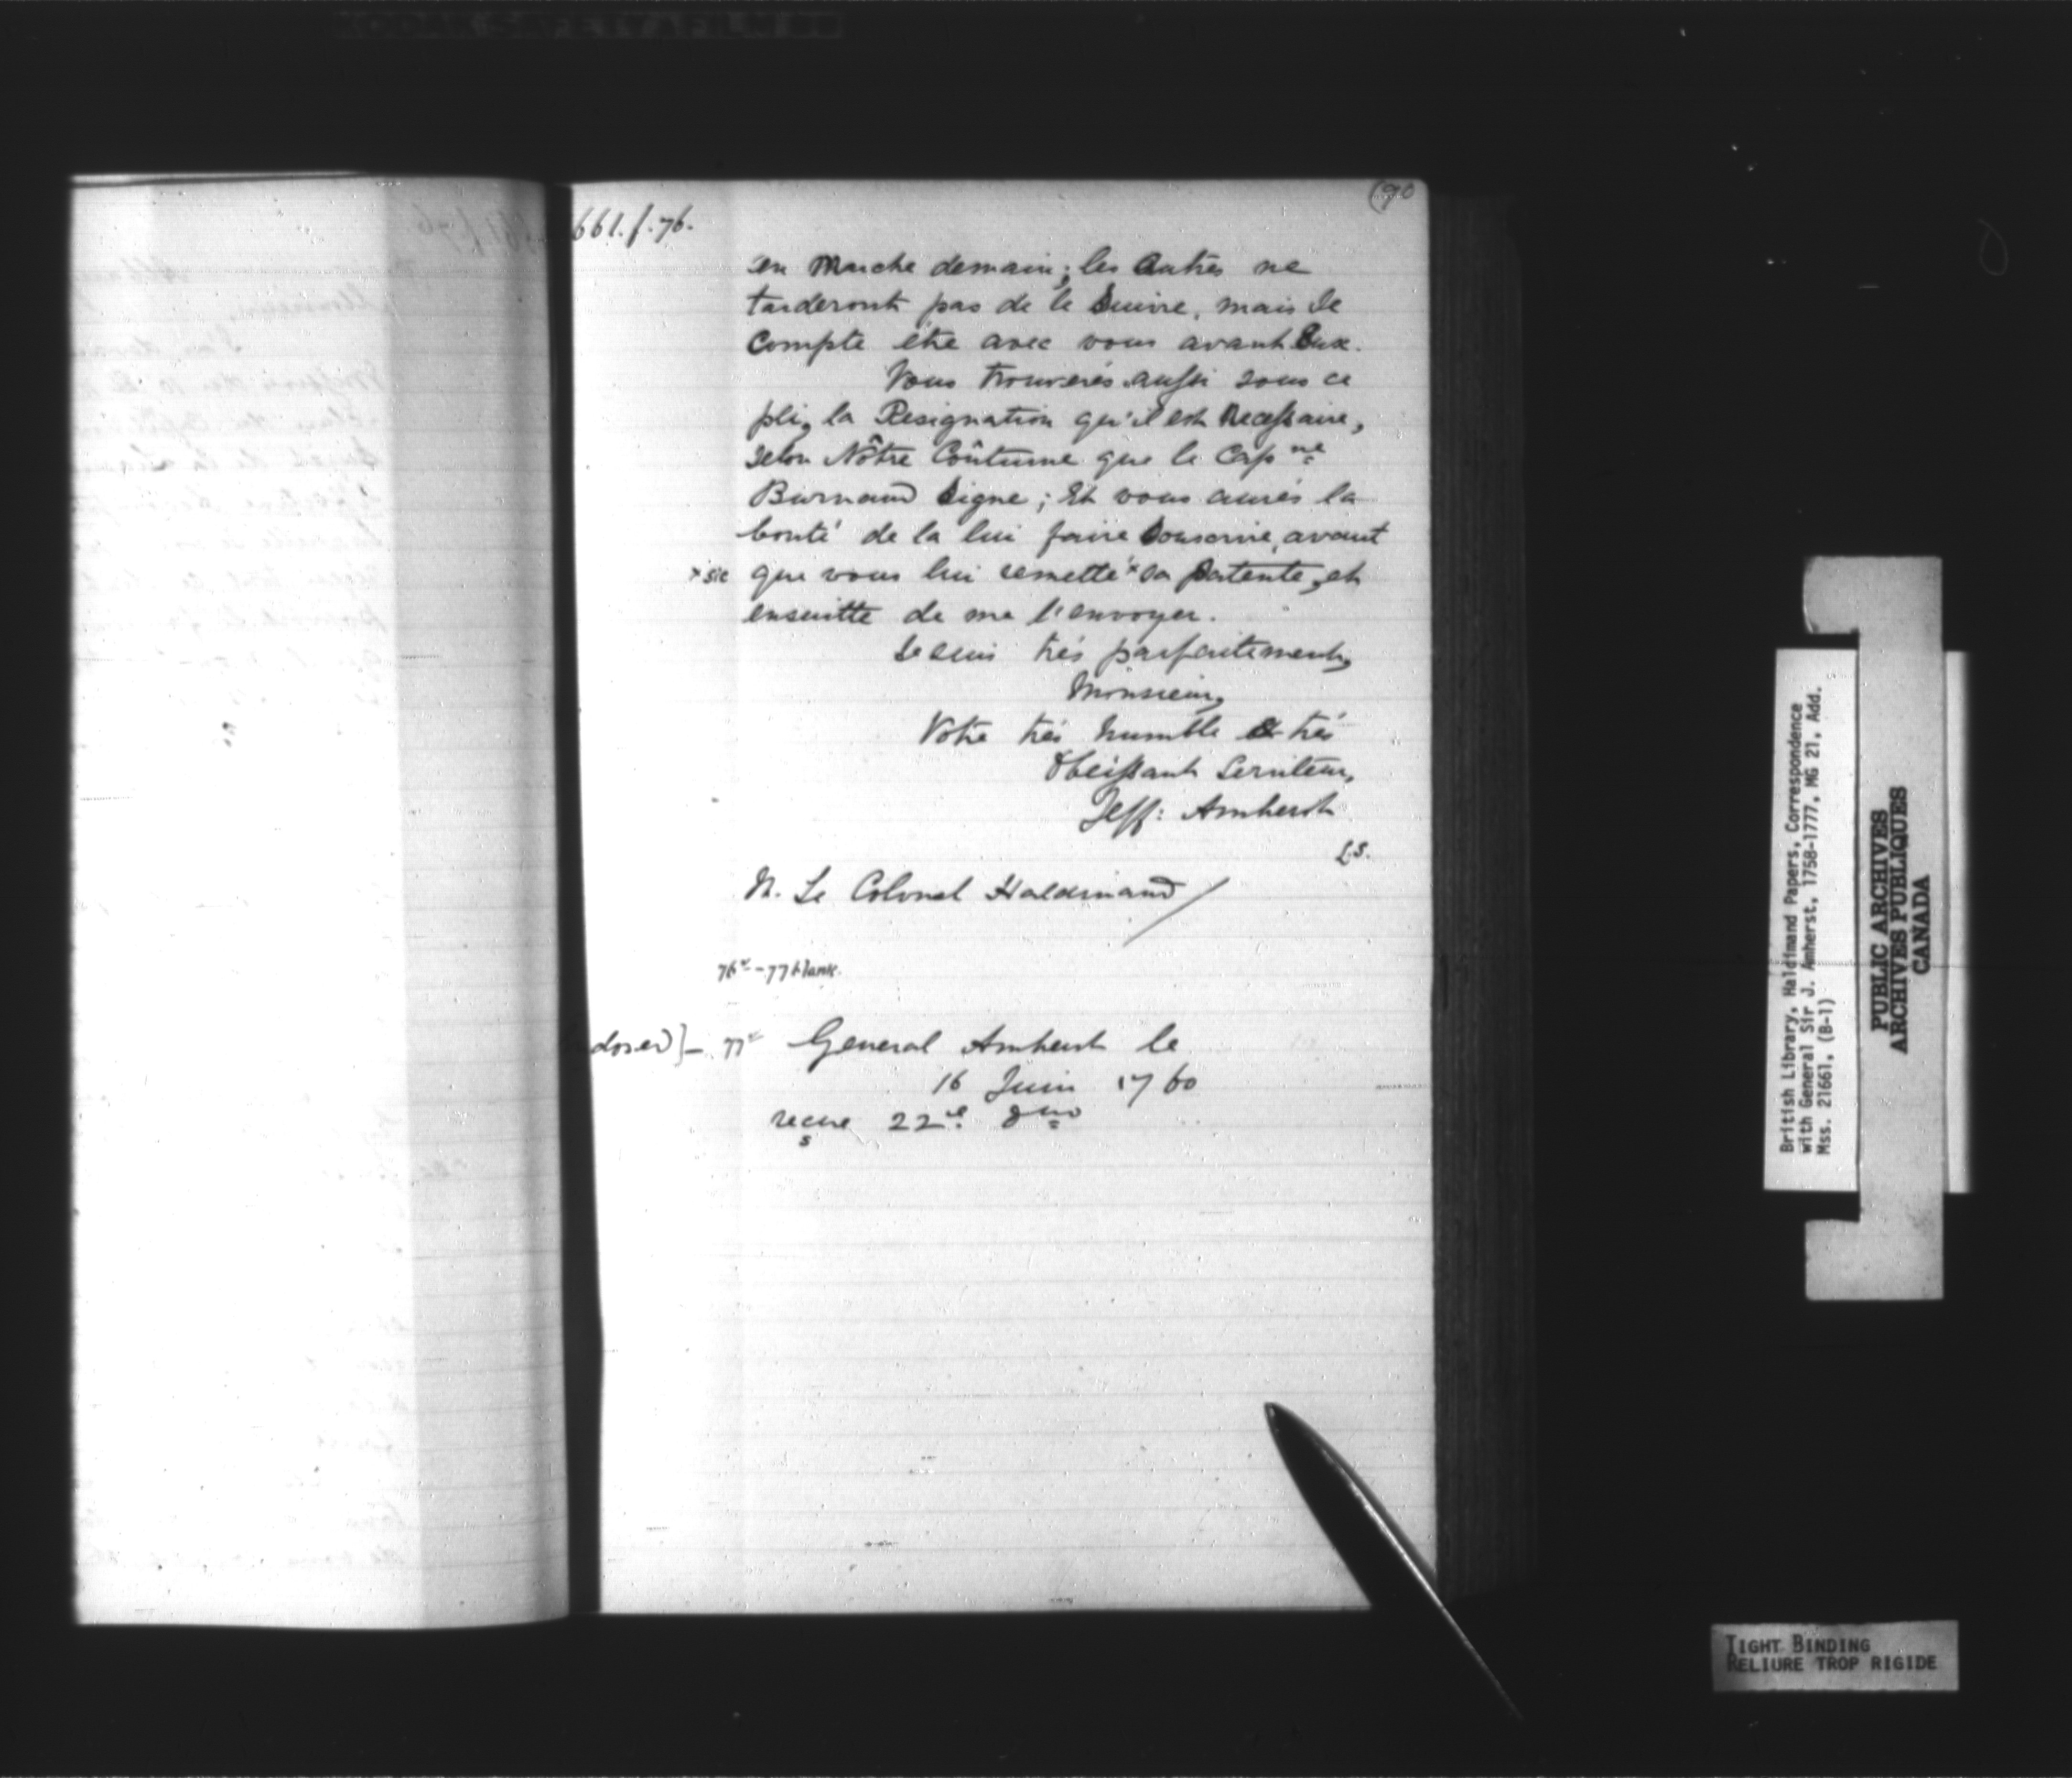 (90
661. f. 76.
en Marche demain; les Autres ne
tarderont pas de le Suivre, mais Je
Compte étre avec vous avant Eux.
Vous trouverés aussi sous ce
pli, la Resignation qu'il est Necessaire,
selon Nôtre Coûtume que le Cap ne
Burnand Signe; Et vous aurés la
bonté de la lui faire Souscrire, avant
x sic que vous lui remetté x sa Patente, et
ensuitte de me l'envoyer.
Je suis trés parfaitement,
Monsieur,
Votre trés humble & trés
Obeissant Serviteur,
Jeff: Amherst
L.S.
M. Le Colonel Haldimand
76v - 77 blank.
dorsed] - 77v General Amherst le
16 Juin 1760
recue 22e dno
s
British Library, Haldimand Papers, Correspondence
with General Sir J. Amherst, 1758-1777, MG 21, Add.
Mss. 21661, (B-1)
PUBLIC ARCHIVES
ARCHIVES PUBLIQUES
CANADA
TIGHT BINDING
RELIURE TROP RIGIDE